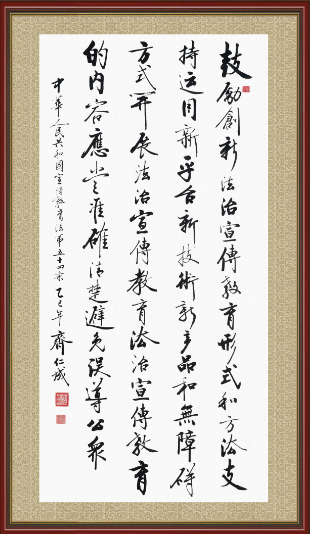 鼓励創新法治宣傳教育形式和方法支
持运用新平台新技術新产品和無障碍
方式开展法治宣傳教育法治宣傳教育
的内容應当准確清楚避免误導公眾
中華人民共和国宣传教育法第五十四条乙巳年齊仁成